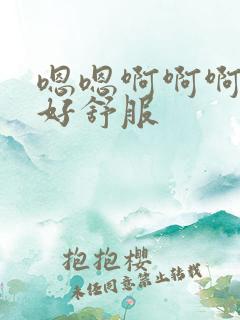 嗯嗯啊啊啊
好舒服
抱抱樱
未经同意禁止转载